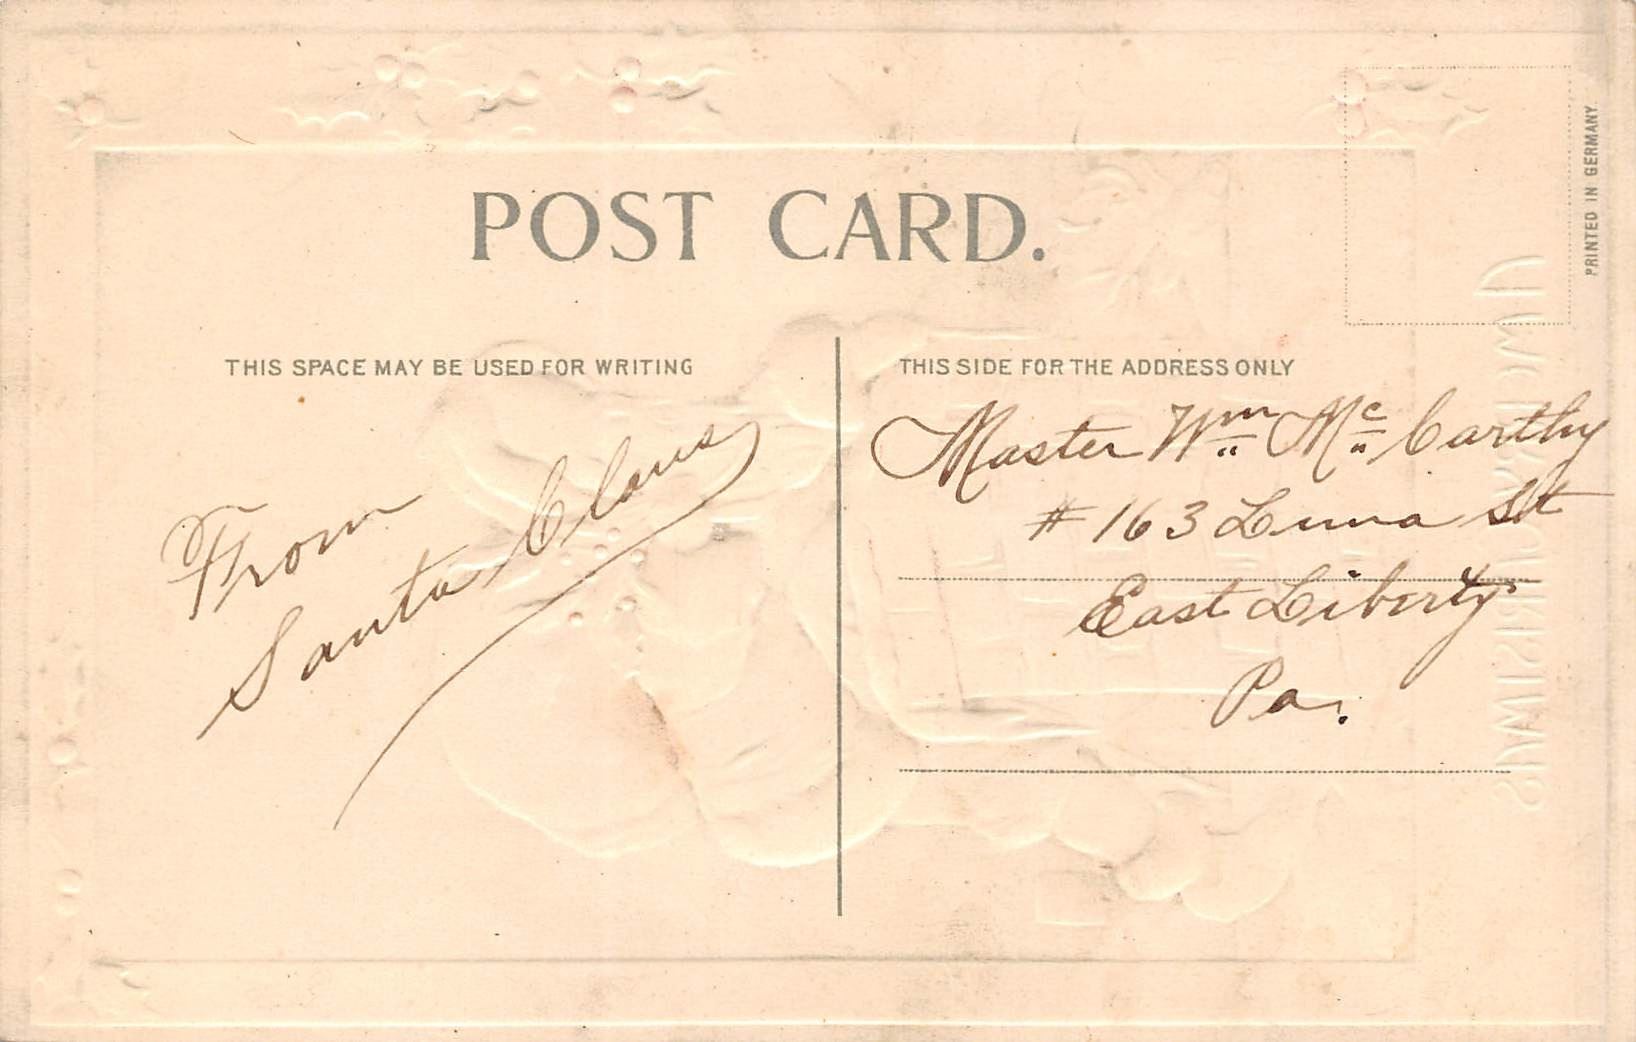 POST CARD.
PRINTED IN GERMANY
THIS SPACE MAY BE USED FOR WRITING
From
Santa Claus
THIS SIDE FOR THE ADDRESS ONLY
Master Wm Mc Carthy
# 163 Luna St
East Liberty
Pa.